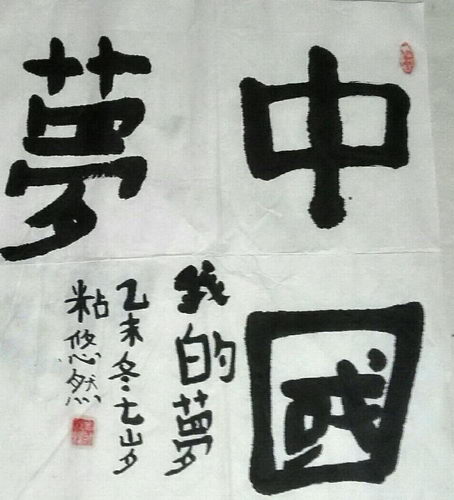 中國
夢
我的夢
乙未冬七山夕
粘悠然